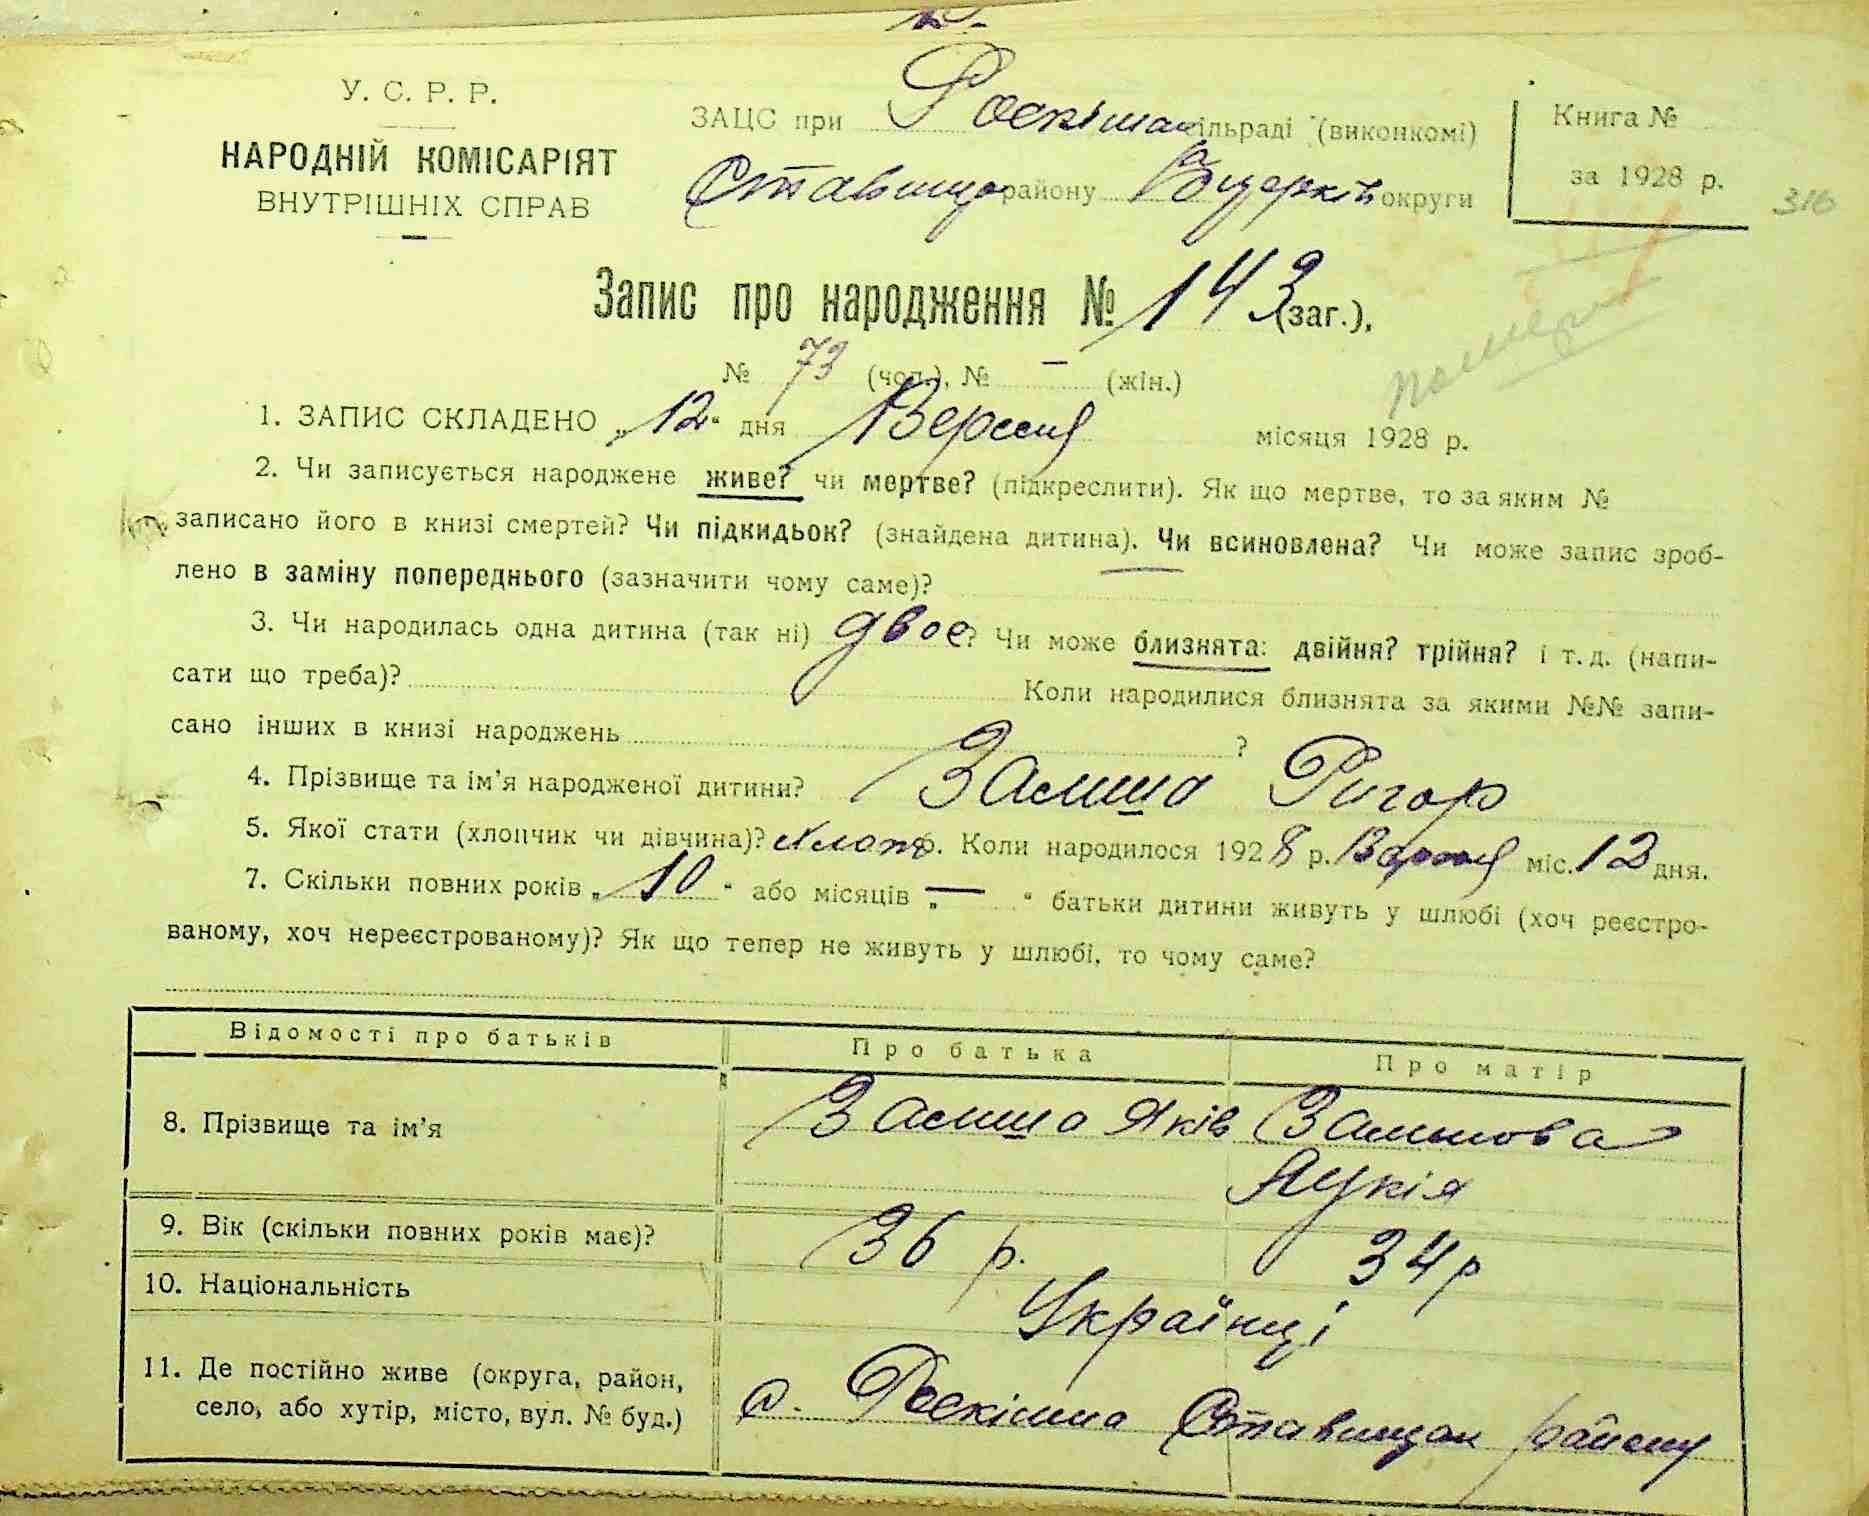 У. С. Р. Р.
НАРОДНІЙ КОМІСАРІЯТ
ВНУТРІШНІХ СПРАВ
ЗАЦС при Роскішан сільраді (виконкомі)
Ставищо району Б Церків округи
Книга №
за 1928 р.
316
Запис про народження № 143 (заг.),
помер
№ 73 (чол.), № — (жін.)
1. ЗАПИС СКЛАДЕНО „12“ дня Вересня місяця 1928 р.
2. Чи записується народжене живе? чи мертве? (підкреслити). Як що мертве, то за яким №
записано його в книзі смертей? Чи підкидьок? (знайдена дитина). Чи всиновлена? Чи може запис зроб-
лено в заміну попереднього (зазначити чому саме)?
3. Чи народилась одна дитина (так ні) двоє? Чи може близнята: двійня? трійня? і т. д. (напи-
сати що треба)? Коли народилися близнята за якими №№ запи-
сано інших в книзі народжень ?
4. Прізвище та ім’я народженої дитини? Замша Ригор
5. Якої стати (хлопчик чи дівчина)? хлопч 6. Коли народилося 1928 р. Вересня міс. 12 дня.
7. Скільки повних років „10“ або місяців „—“ батьки дитини живуть у шлюбі (хоч реєстро-
ваному, хоч нереєстрованому)? Як що тепер не живуть у шлюбі, то чому саме?
Відомості про батьків Про батька Про матір
8. Прізвище та ім’я Замша Яків Замшова
Лукія
9. Вік (скільки повних років має)? 36 р. 34 р
10. Національність Українці
11. Де постійно живе (округа, район,
село, або хутір, місто, вул. № буд.) с. Роскішна Ставищан району